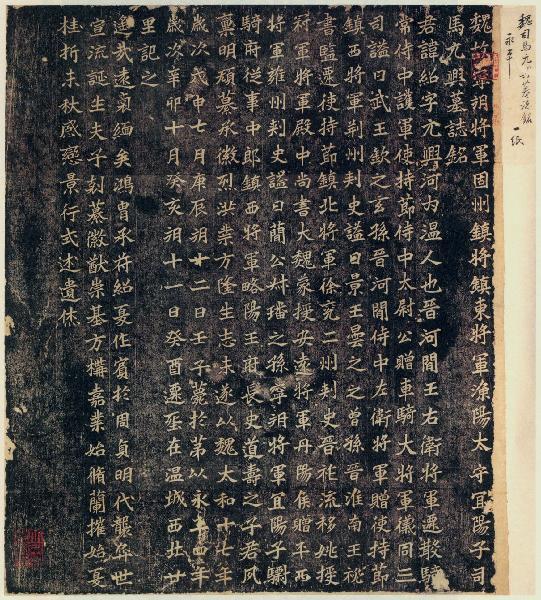 魏司馬元興墓誌銘
永平
一紙
魏故寧朔將軍固州鎮將鎮東將軍漁陽太守宜陽子司
馬元興墓誌銘
君諱紹字元興河內溫人也晉河間王右衛將軍遷散騎
常侍中護軍使持節侍中太尉公贈車騎大將軍儀同三
司謚曰武王欽之玄孫晉河間侍中左衛將軍贈使持節
鎮西將軍荊州刾史謚曰景王曇之之曾孫晉淮南王秘
書監遷使持節鎮北將軍徐兗二州刾史晉祚流移姚授
冠軍將軍殿中尚書大魏蒙授安遠將軍丹陽侯贈平西
將軍雍州刾史謚曰蕳公叔璠之孫寧朔將軍宜陽子驑
騎府從事中郎鎮西將軍略陽王府長史道壽之子君夙
稟明頏纂承徽烈洪業方隆生志未遂以魏太和十七年
歲次戊申七月庚辰朔廿二日壬午薨於第以永平四年
歲次辛卯十月癸亥朔十一日癸酉遷塟在溫城西北廿
里記之
遙哉遠冑緬矣鴻冑承符紹夏作賓於周貞明代襲弈世
宣流誕生夫子剋纂徽猷崇基方構嘉業始脩蘭摧始夏
桂折未秋感戀景行式述遺休